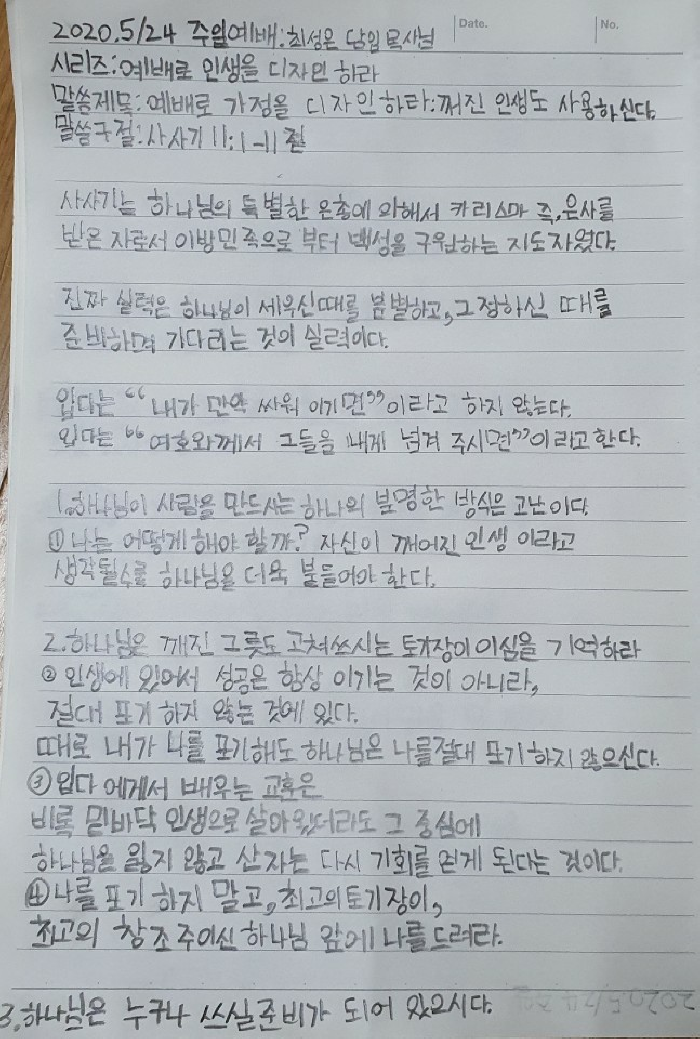 2020.5/24 주일예배:최성은 담임목사님
Date.
No.
시리즈:예배로 인생을 디자인 하라
말씀제목:예배로 가정을 디자인하라:깨진 인생도 사용하신다.
말씀구절:사사기 11:1-11절
사사기는 하나님의 특별한 은총에 의해서 카리스마 즉,은사를
받은 자로서 이방민족으로 부터 백성을 구원하는 지도자였다.
진짜 실력은 하나님이 세우신때를 분별하고,그정하신 때를
준비하며 기다리는 것이 실력이다.
입다는 “내가 만약 싸워 이기면”이라고 하지 않는다.
입다는 “여호와께서 그들을 내게 넘겨 주시면”이라고한다.
1.하나님이 사람을 만드시는 하나의 분명한 방식은 고난이다.
① 나는 어떻게 해야 할까? 자신이 깨어진 인생 이라고
생각될수록 하나님을 더욱 붙들어야 한다.
2.하나님은 깨진 그릇도 고쳐쓰시는 토기장이이심을 기억하라
② 인생에 있어서 성공은 항상 이기는 것이 아니라,
절대 포기 하지 않는 것에 있다.
때로 내가 나를 포기해도 하나님은 나를절대 포기하지 않으신다.
③ 입다 에게서 배우는 교훈은
비록 밑바닥 인생으로 살아왔더라도 그 중심에
하나님을 잃지 않고 산자는 다시 기회를 얻게 된다는 것이다.
④ 나를 포기 하지 말고, 최고의토기장이,
최고의 창조주이신 하나님 앞에 나를드려라.
3.하나님은 누구나 쓰실준비가 되어 있으시다.